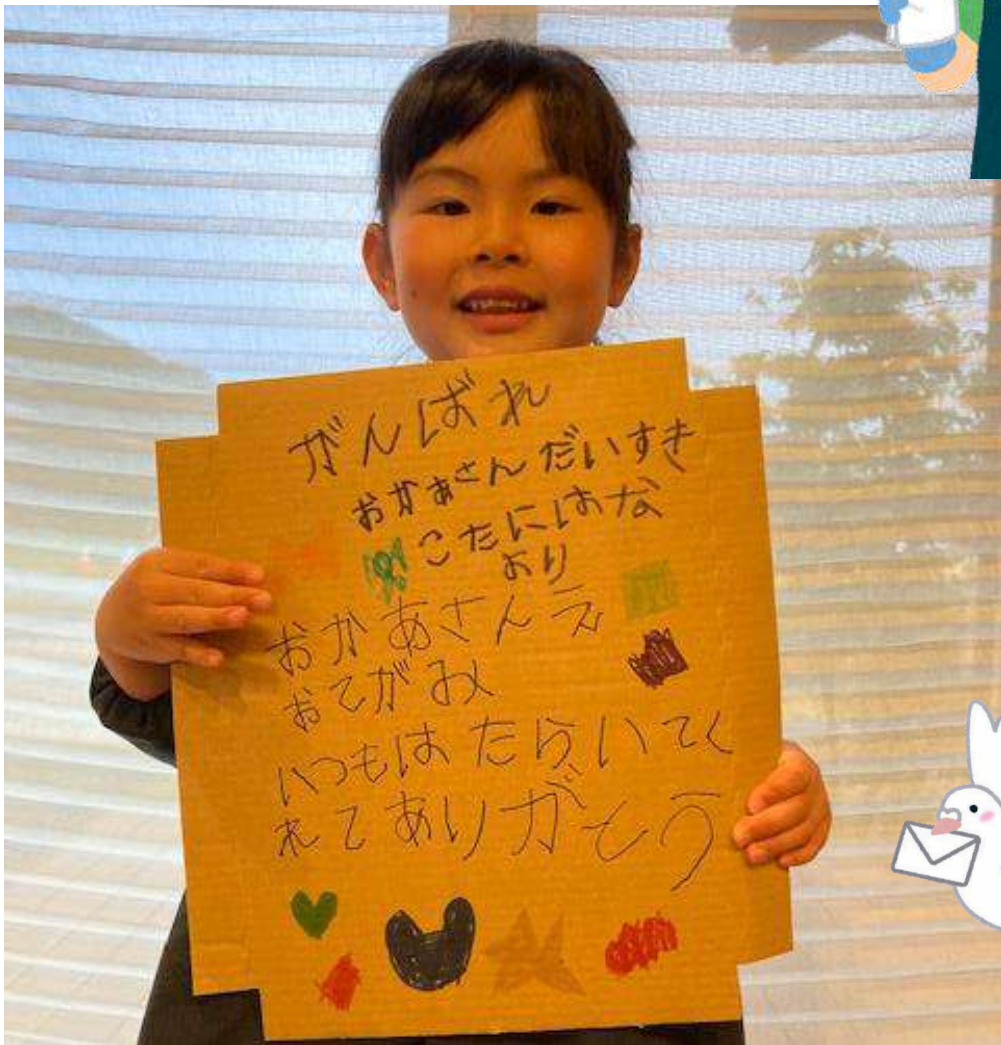 がんばれ
おかあさんだいすき
こたにはな
より
おかあさんえ
おてがみ
いつもはたらいてく
れてありがとう